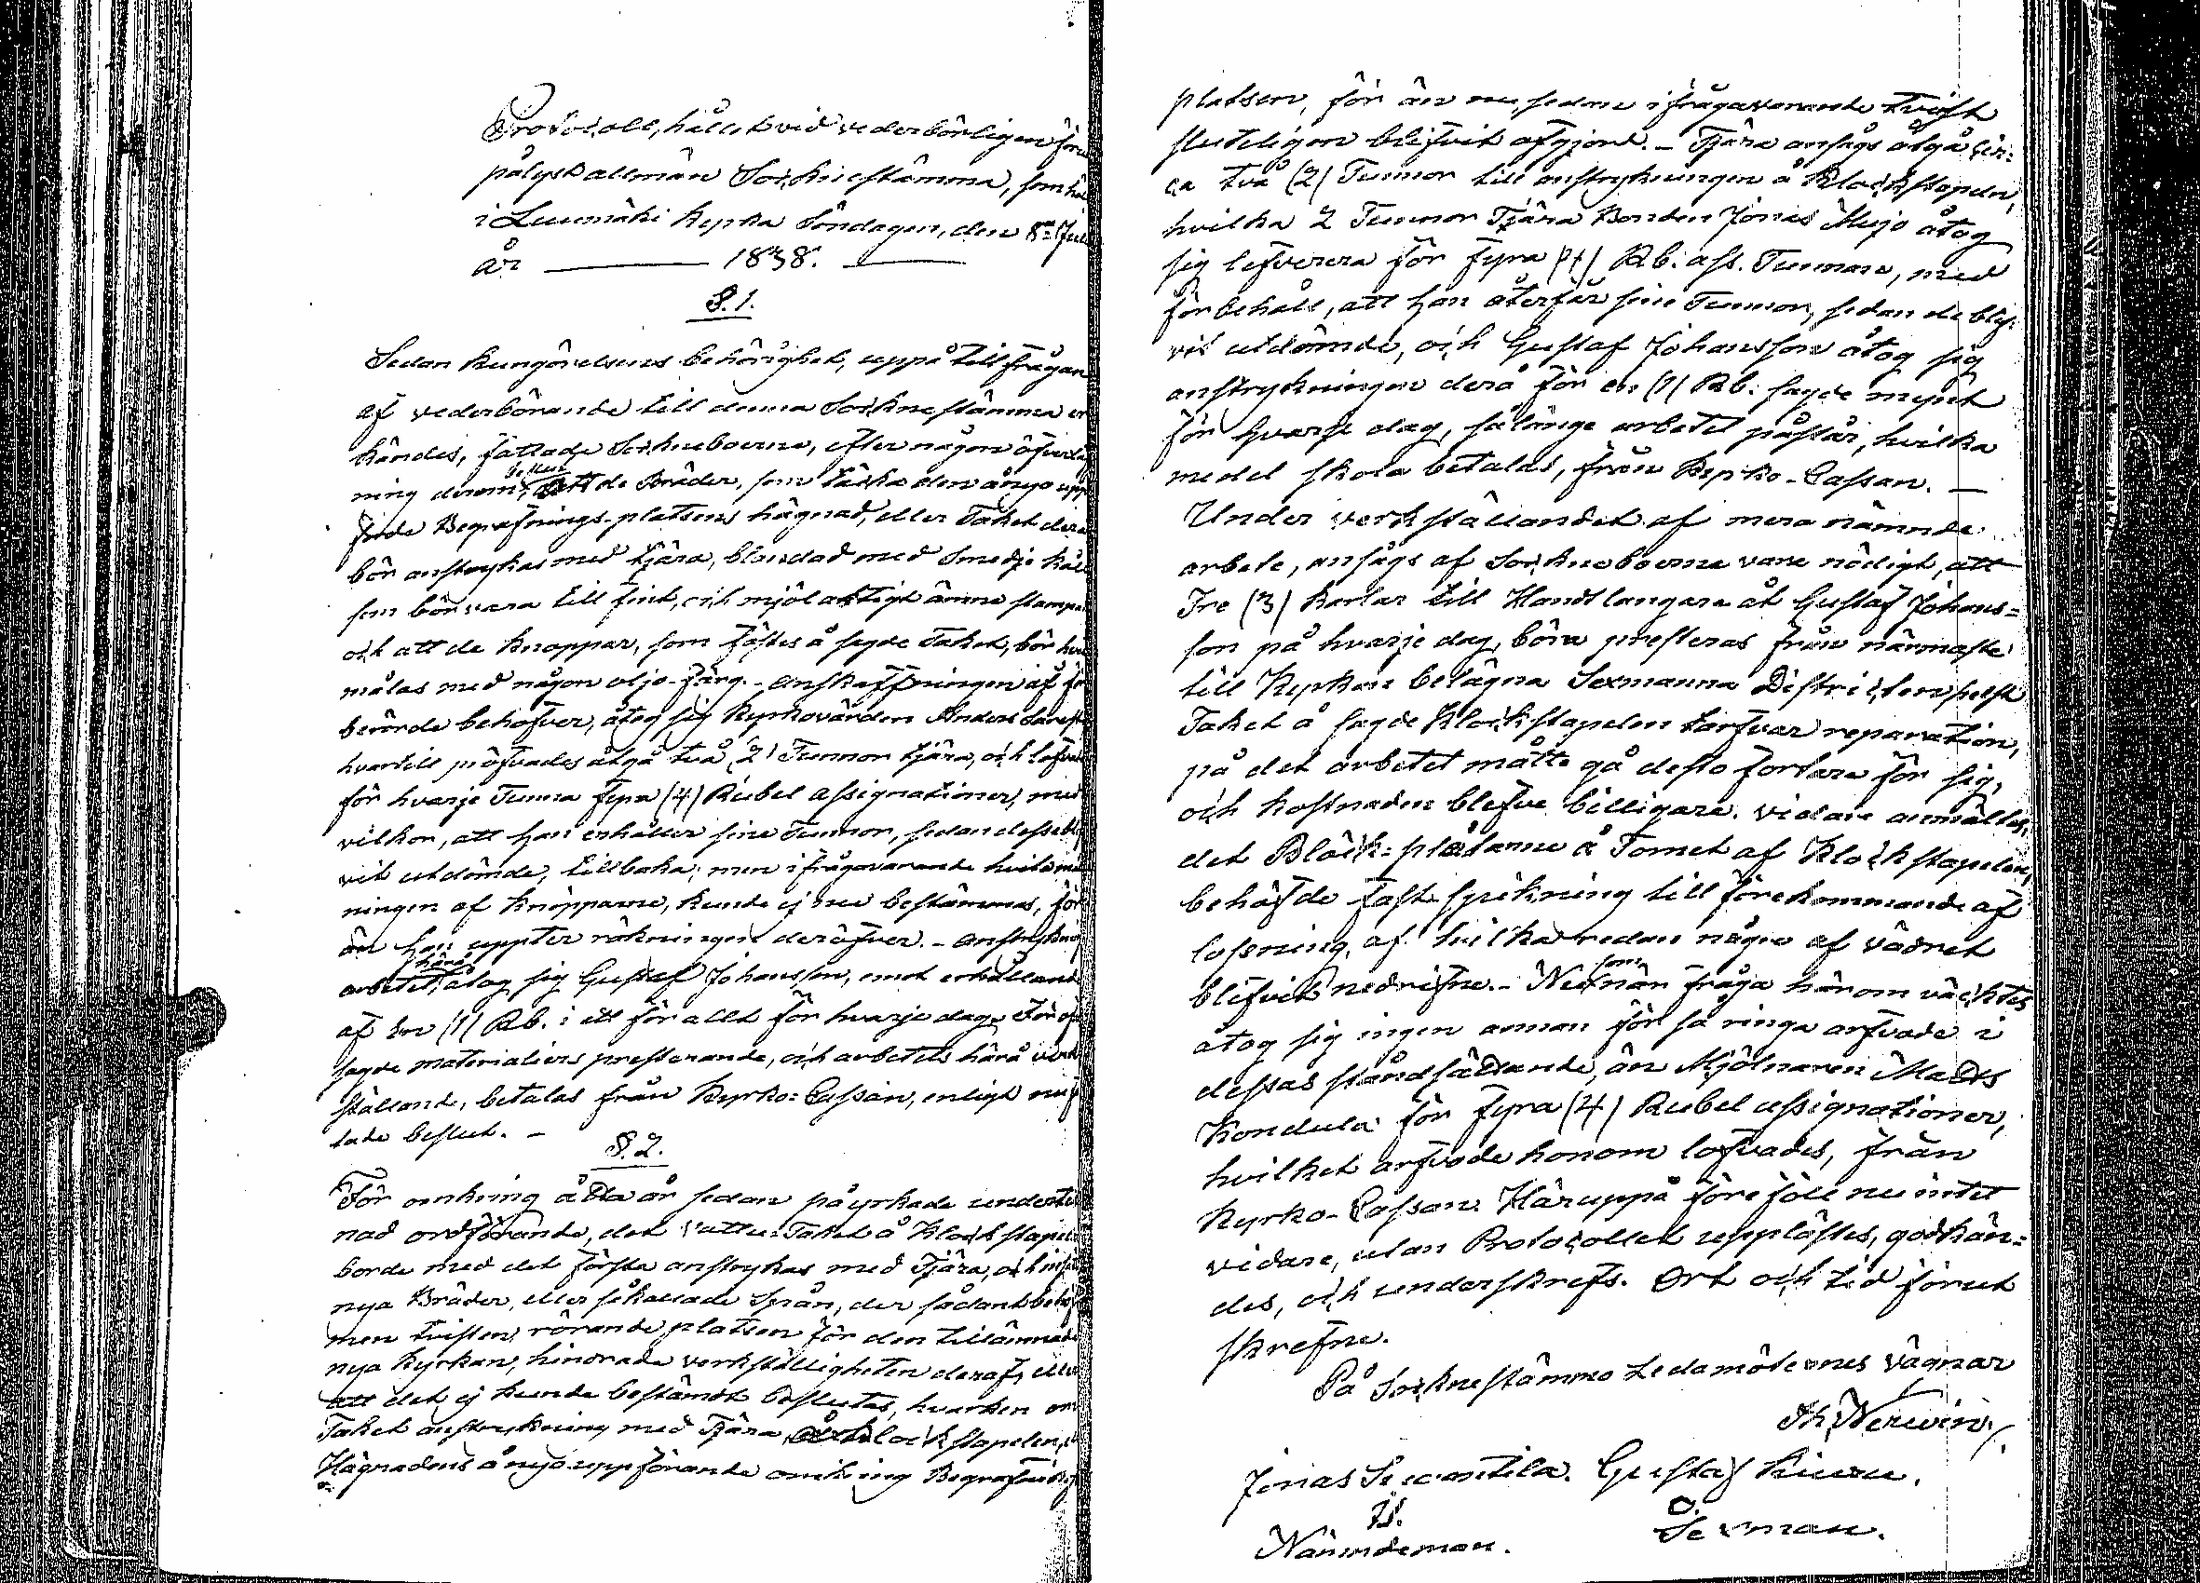 Protocoll, hållet vid vederbörligen före
pålyst allmän Socknestämma, som hölls
i Luumäki Kyrka Söndagen, den 8de Julii
År 1838.
§.1.
Sedan Kungörelsens behörighet, uppå tillfrågan
af vederbörande till denna Sockne stämma er
kändes, fattade Sockneboerne, efter någon öfverlägg
ning derom, beslut att de Bräder, som täcka den å nyo upp
förde Begrafnings-platsens hägnad, eller Taket derå
bör anstrykas med tjära, blandad med Smedje kål
som bör vara till fint, och mjölaktigt ämne stampad
och att de Knappar, som fästes å sagde Taket, bör hvit
målas med någon olje-färg. - Anskaffningen af för
berörde behofver, åtog sig Kyrkovärden Anders
hvartill pröfvades åtgå två (2) Tunnor tjära, och lofvades
för hvarje Tunna fyra (4) Rubel assignationer, med
vilkor, att han erhåller sine Tunnor, sedan desse blif
vit utdömde, tillbaka; men ifrågavarande hvitmål
ningen af Knopparne, kunde ej nu bestämmas, förr
än han uppter räkningen deröfver. - Anstryknings
arbetet härå, åtog sig Gustaf Johansson, emot erhållande
af En (1) Rb. i ett för allt för hvarje dag. För of
sagde materialiers presterande, och arbetets härå verk
ställande, betalas från Kyrko-Cassan, enligt nu fat
tade beslut. -
§.2.
För omkring åtta år sedan påyrkade underteck
nad ordförande, det vattu-Taket å Klockstapeln
borde med det första anstrykas med Tjära, och
nya Bräder, eller så kallade Spån, der sådant behöfs
men tvisten, rörande platsen för den tillämnade
nya Kyrkan, hindrade verkställigheten deraf, eller
att det ej kunde bestämdt beslutas, hvarken om
Taket anstrykning med Tjära, å Klockstapelen,
Hägnadens å nyo uppförande omkring Begrafnings
platsen, för än nu, sedan ifrågavarande tvist
sluteligen blifvit afgjord. - Tjära ansågs åtgå cir=
ca två (2) Tunnor till anstrykningen å Klockstapeln,
hvilka 2 Tunnor Tjära Bonden Jonas Mujo åtog
sig lefverera för fyra (4) Rb. ass. Tunnan, med
förbehåll, att han återfår sine Tunnor, sedan de blif-
vit utdömde, och Gustaf Johansson åtog sig
anstrykningen derå för en (1) Rb: sagde mynt
för hvarje dag, så länge arbetet påstår, hvilka
medel skola betalas, från Kyrko-Cassan. -
Under verkställandet af mera nämnde
arbete, ansågs af Sockneboerne vara nödigt, att
Tre (3) Karlar till Handtlangare åt Gustaf Johans=
son på hvarje dag, böra presteras från närmaste
till Kyrkan belägna Sexmanna Districter, helst
Taket å sagde Klockstapelen tarfvar reparation,
på det arbetet måtte gå desto fortare för sig,
och kostnaden blefve billigare. Vidare anmältes,
det Bläck-plåtarne å Tornet af Klockstapelen,
behöfde fast spikning till förekommande af
lossning, af hvilka redan någre af vädret
blifvit nedrifne. - Me som när fråga härom väcktes
åtog sig ingen annan för så ringa arfvode i
dessas ståndsättande, än Mjölnaren Madts
Kondula för fyra (4) Rubel assignationer,
hvilket arfvode honom lofvades, från
Kyrko-Cassan. Häruppå föreföll nu intet
vidare, utan Protocollet upplästes, godkän=
des, och underskrefs. Ort och tid förut
skrefne.
På Sockne stämmo Ledamöternes vägnar
Ah. Werwin,
Jonas Suantila. Gustaf Kiuru.
Nämndeman. Sexman.